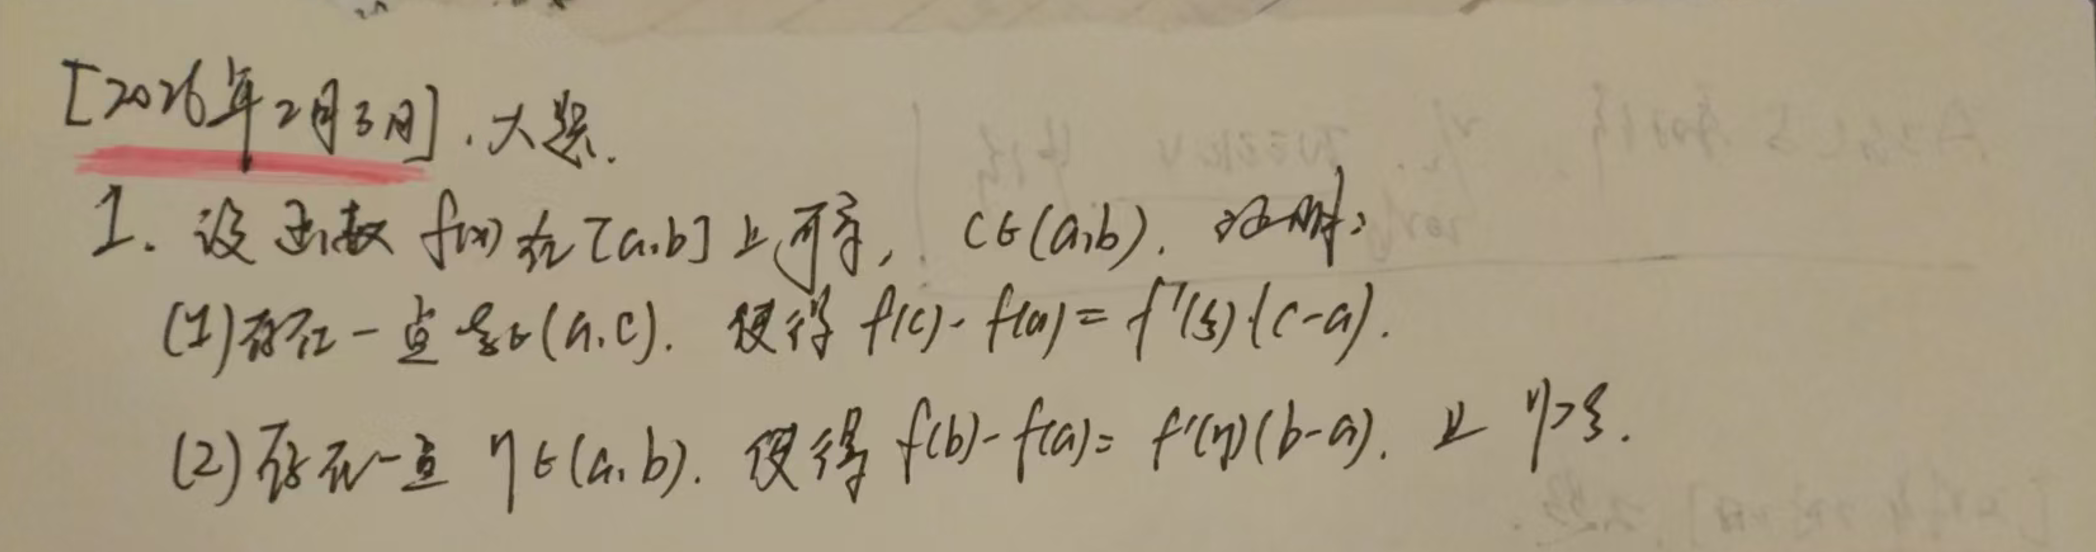 [2026年2月3日].大题.
1. 设函数 f(x) 在 [a,b] 上可导, c∈(a,b). 证明:
(1) 存在一点 ξ∈(a,c). 使得 f(c)-f(a)=f'(ξ)·(c-a).
(2) 存在一点 η∈(a,b). 使得 f(b)-f(a)=f'(η)(b-a). 且 η>ξ.